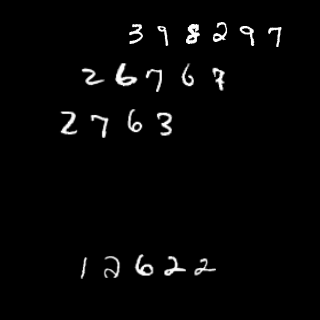 398297
26767
2763
12622